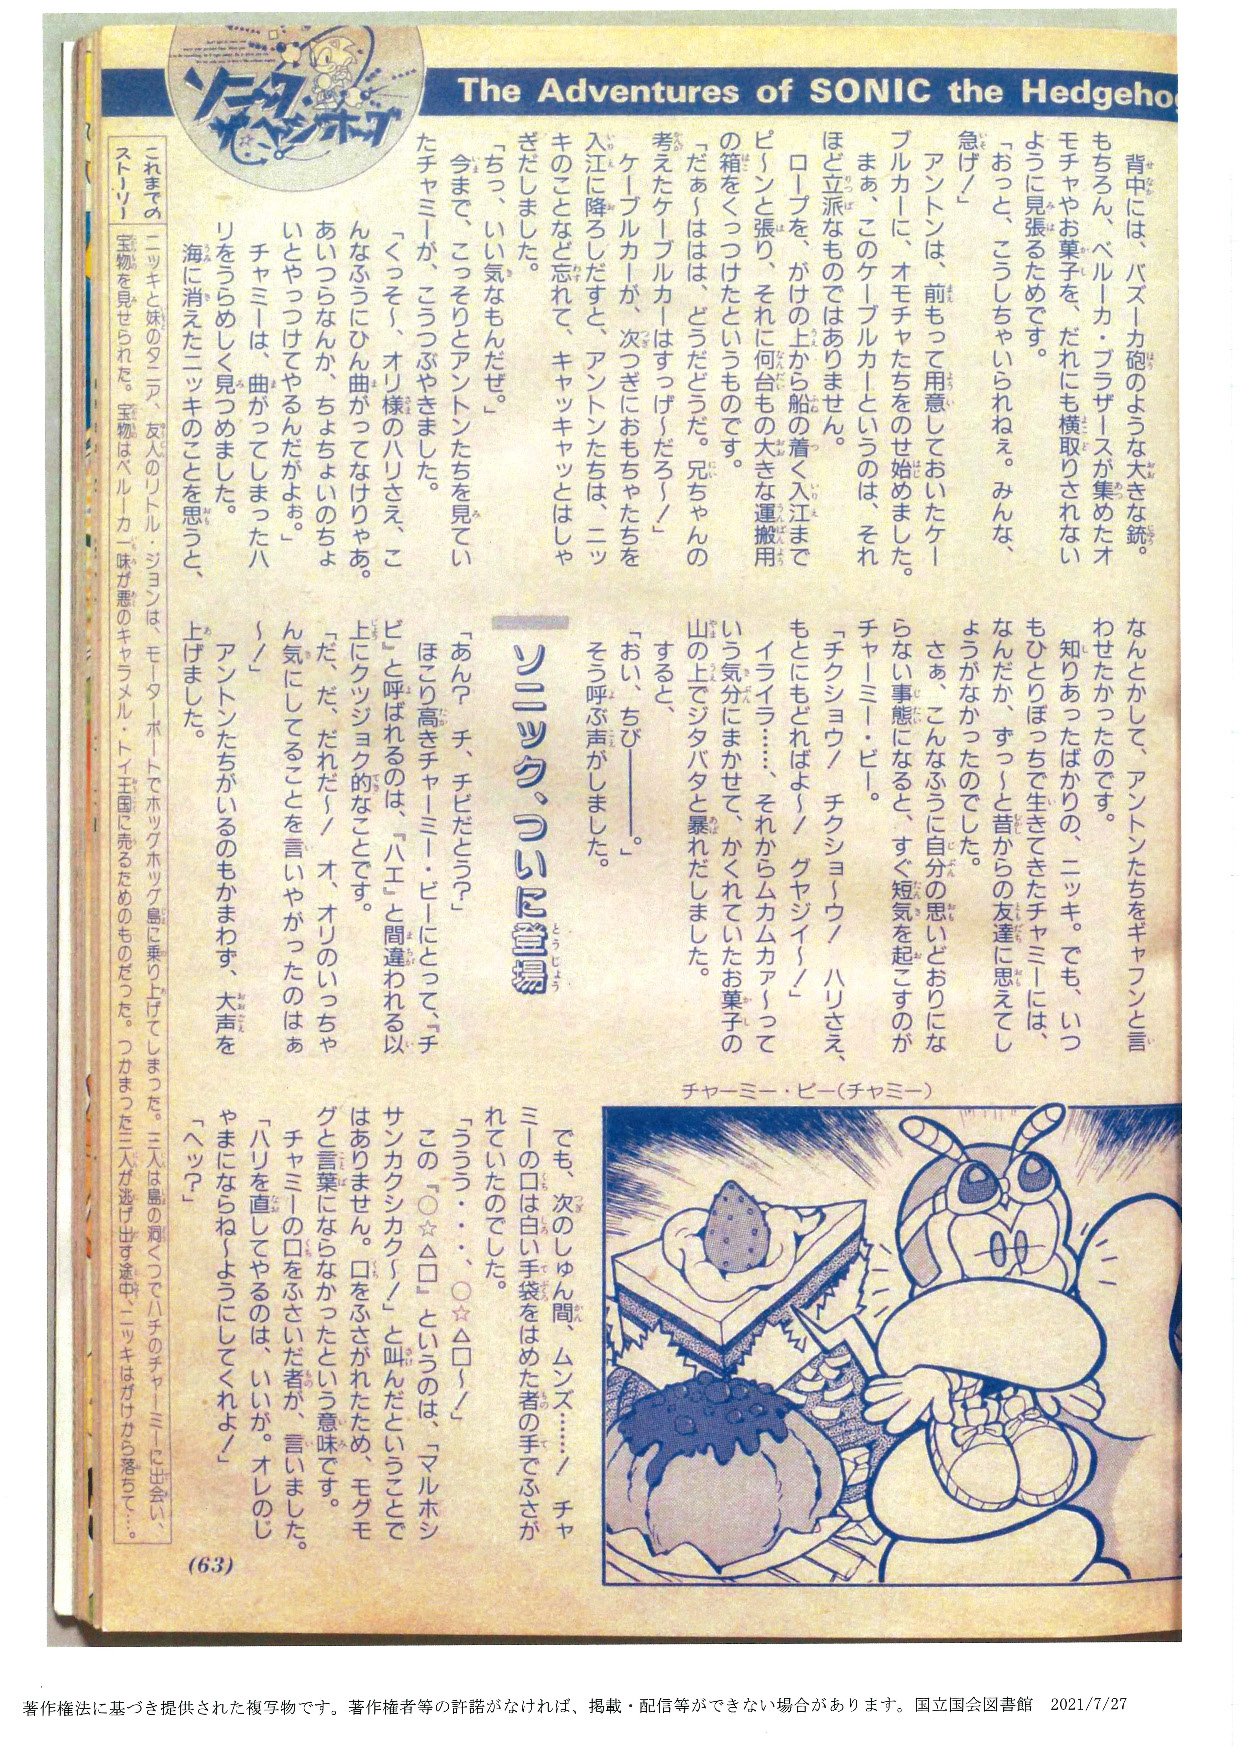 The Adventures of SONIC the Hedgehog
ソニック
ザ・ヘッジホッグ
背中には、バズーカ砲のような大きな銃。
もちろん、ベルーカ・ブラザースが集めたオ
モチャやお菓子を、だれにも横取りされない
ように見張るためです。
「おっと、こうしちゃいられねぇ。みんな、
急げ！」
アントンは、前もって用意しておいたケー
ブルカーに、オモチャたちをのせ始めました。
まぁ、このケーブルカーというのは、それ
ほど立派なものではありません。
ロープを、がけの上から船の着く入江まで
ピ〜ンと張り、それに何台もの大きな運搬用
の箱をくっつけたというものです。
「だぁ〜ははは、どうだどうだ。兄ちゃんの
考えたケーブルカーはすっげ〜だろ〜！」
ケーブルカーが、次つぎにおもちゃたちを
入江に降ろしだすと、アントンたちは、ニッ
キのことなど忘れて、キャッキャッとはしゃ
ぎだしました。
「ちっ、いい気なもんだぜ。」
今まで、こっそりとアントンたちを見てい
たチャミーが、こうつぶやきました。
「くっそ〜、オリ様のハリさえ、こ
んなふうにひん曲がってなけりゃあ。
あいつらなんか、ちょちょいのちょ
いとやっつけてやるんだがよぉ。」
チャミーは、曲がってしまったハ
リをうらめしく見つめました。
海に消えたニッキのことを思うと、
なんとかして、アントンたちをギャフンと言
わせたかったのです。
知りあったばかりの、ニッキ。でも、いつ
もひとりぼっちで生きてきたチャミーには、
なんだか、ずっ〜と昔からの友達に思えてし
ようがなかったのでした。
さぁ、こんなふうに自分の思いどおりにな
らない事態になると、すぐ短気を起こすのが
チャーミー・ビー。
「チクショウ！　チクショ〜ウ！　ハリさえ、
もとにもどればよ〜！　グヤジイ〜！」
イライラ……、それからムカムカァ〜って
いう気分にまかせて、かくれていたお菓子の
山の上でジタバタと暴れだしました。
すると、
「おい、ちび――――。」
そう呼ぶ声がしました。
ソニック、ついに登場
「あん？　チ、チビだとう？」
ほこり高きチャーミー・ビーにとって、『チ
ビ』と呼ばれるのは、『ハエ』と間違われる以
上にクツジョク的なことです。
「だ、だ、だれだ〜！　オ、オリのいっちゃ
ん気にしてることを言いやがったのはぁ
〜！」
アントンたちがいるのもかまわず、大声を
上げました。
チャーミー・ビー(チャミー)
でも、次のしゅん間、ムンズ……！　チャ
ミーの口は白い手袋をはめた者の手でふさが
れていたのでした。
「ううう・・・、○☆△□〜！」
この『○☆△□』というのは、「マルホシ
サンカクシカク〜！」と叫んだということで
はありません。口をふさがれたため、モグモ
グと言葉にならなかったという意味です。
チャミーの口をふさいだ者が、言いました。
「ハリを直してやるのは、いいが。オレのじ
ゃまにならね〜ようにしてくれよ！」
「ヘッ？」
これまでの
ストーリー
ニッキと妹のタニア、友人のリトル・ジョンは、モーターボートでホッグホッグ島に乗り上げてしまった。三人は島の洞くつでハチのチャーミーに出会い、
宝物を見せられた。宝物はベルーカ一味が悪のキャラメル・トイ王国に売るためのものだった。つかまった三人が逃げ出す途中、ニッキはがけから落ちて…。
(63)
著作権法に基づき提供された複写物です。著作権者等の許諾がなければ、掲載・配信等ができない場合があります。国立国会図書館　2021/7/27